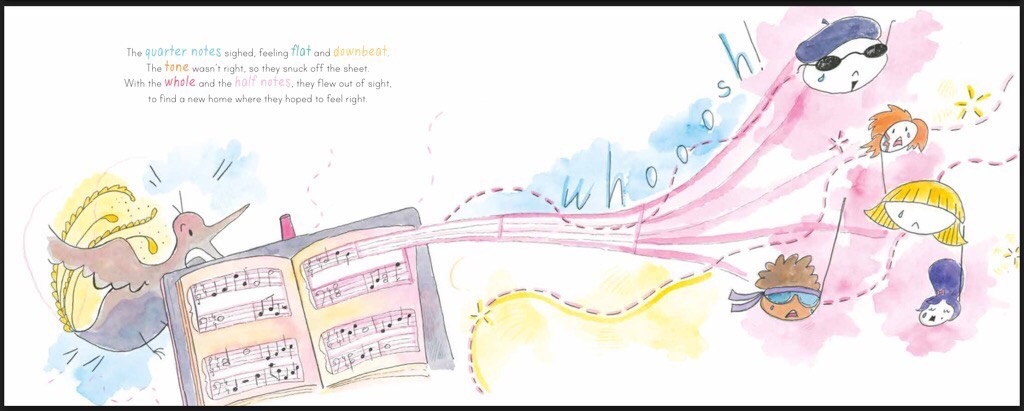 The quarter notes sighed, feeling flat and downbeat.
The tone wasn't right, so they snuck off the sheet.
With the whole and the half notes, they flew out of sight,
to find a new home where they hoped to feel right.
whooosh!